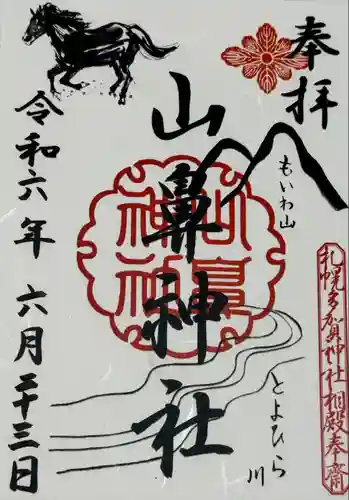 奉拝
もいわ山
札幌多加殿神社相殿奉斎
山鼻神社
とよひら川
令和六年 六月二十三日